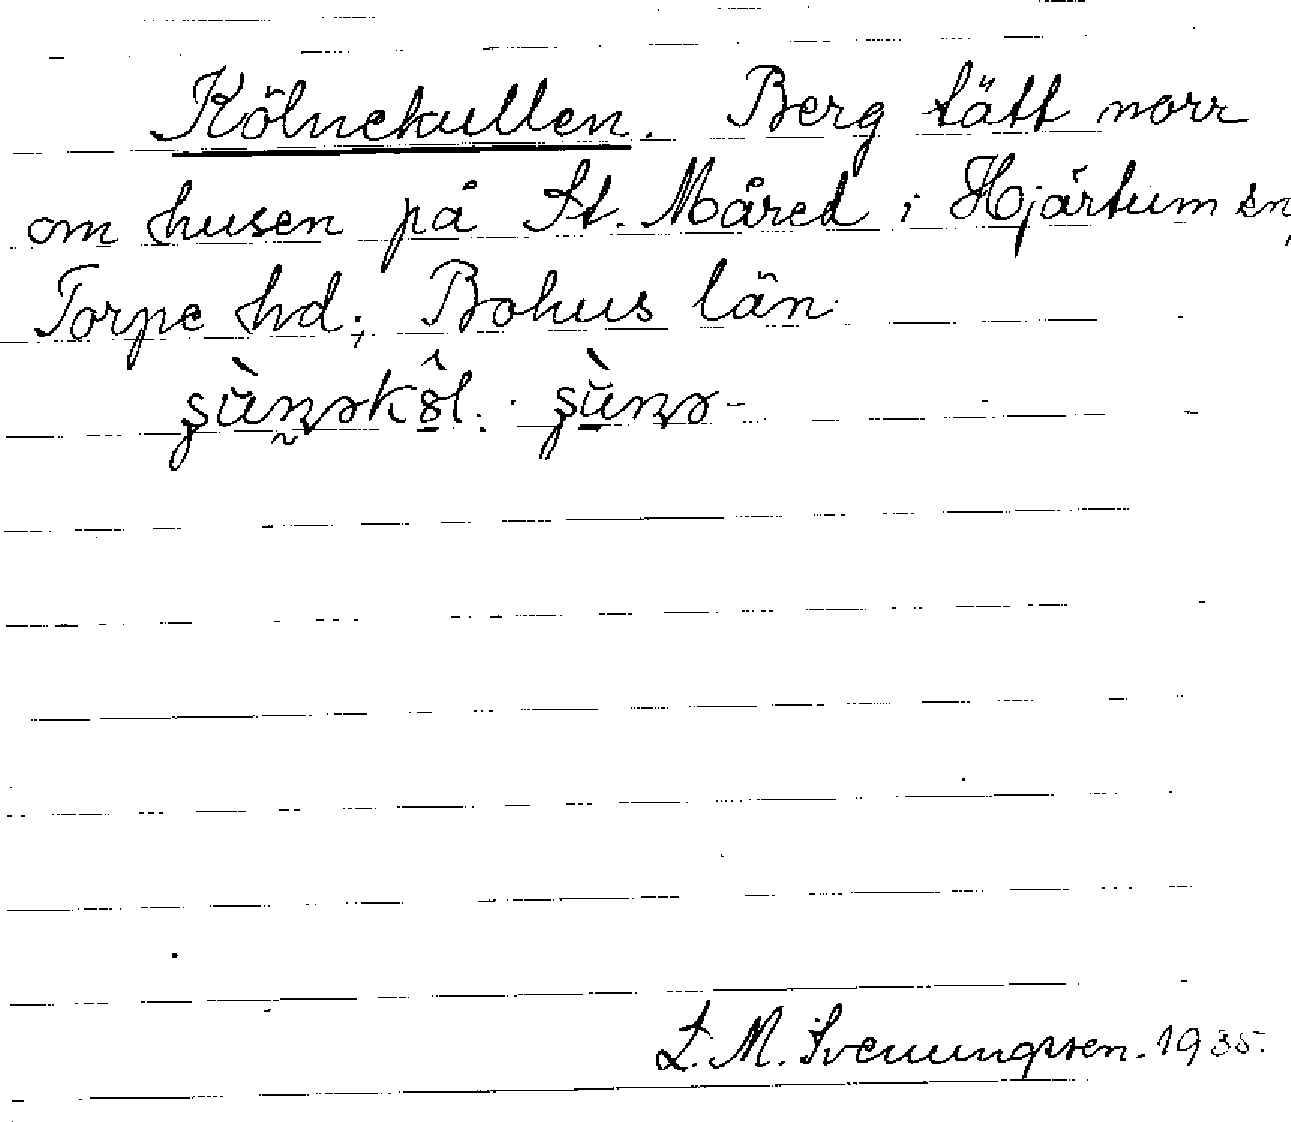 Kölnekullen. Berg tätt norr
om husen på St. Måred i Hjärtum sn,
Torpe hd; Bohus län
L. M. Svenungsson. 1935.